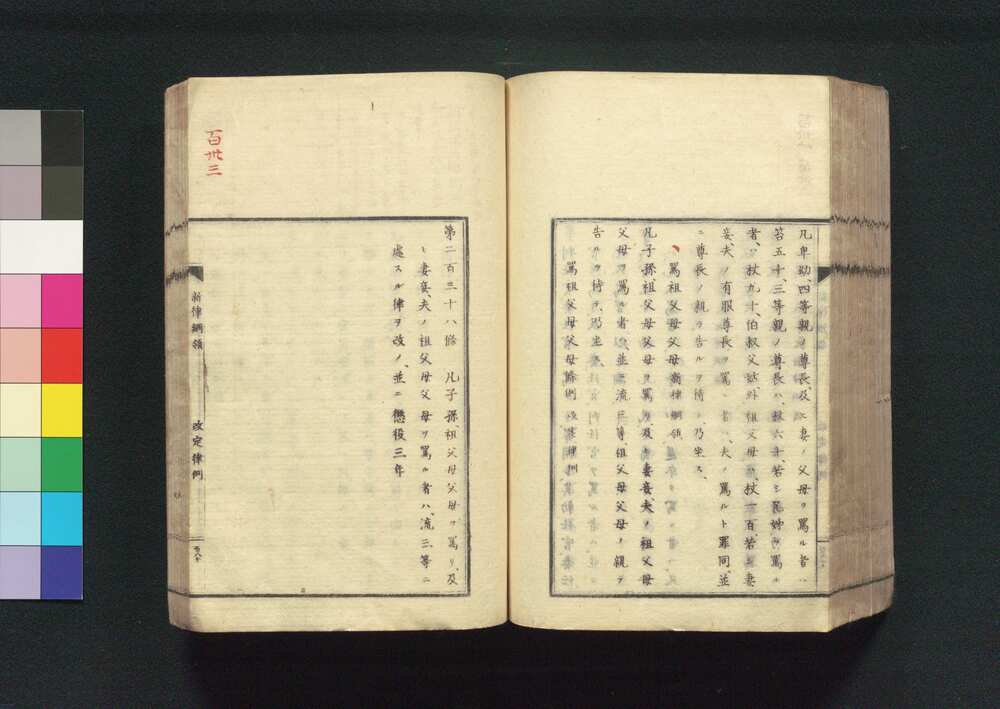 凡卑幼、四等親ノ尊長、及ヒ妻ノ父母ヲ罵ル者ハ
笞五十、三等親ノ尊長ハ、杖六十、若シ兄姉ヲ罵ル
者ハ、杖九十、伯叔父姑、外祖父母ハ、杖一百、若シ妻
妾、夫ノ有服尊長ヲ罵ル者ハ、夫ノ罵ルト罪同、並
ニ尊長ノ親ラ告ルヲ待テ、乃坐ス、
罵祖父母父母 新律綱領
凡子孫、祖父母父母ヲ罵リ、及ヒ妻妾、夫ノ祖父母
父母ヲ罵ル者ハ、並ニ流三等、祖父母父母ノ親ラ
告ルヲ待テ、乃坐ス、
罵祖父母父母條例 改定律例
百卅三
第二百三十八條 凡子孫、祖父母父母ヲ罵リ、及
ヒ妻妾、夫ノ祖父母父母ヲ罵ル者ハ、流三等ニ
處スル律ヲ改メ、並ニ懲役三年
新律綱領 改定律例